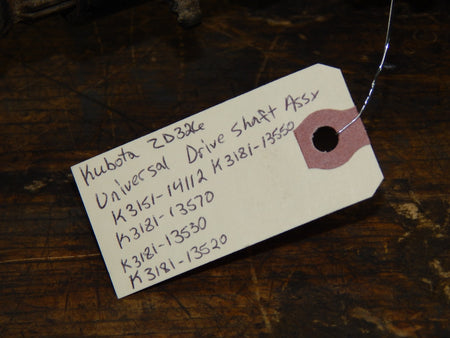 Kubota ZD326
Universal Drive Shaft Assy
K3151-14112 K3181-13550
K3181-13570
K3181-13530
K3181-13520